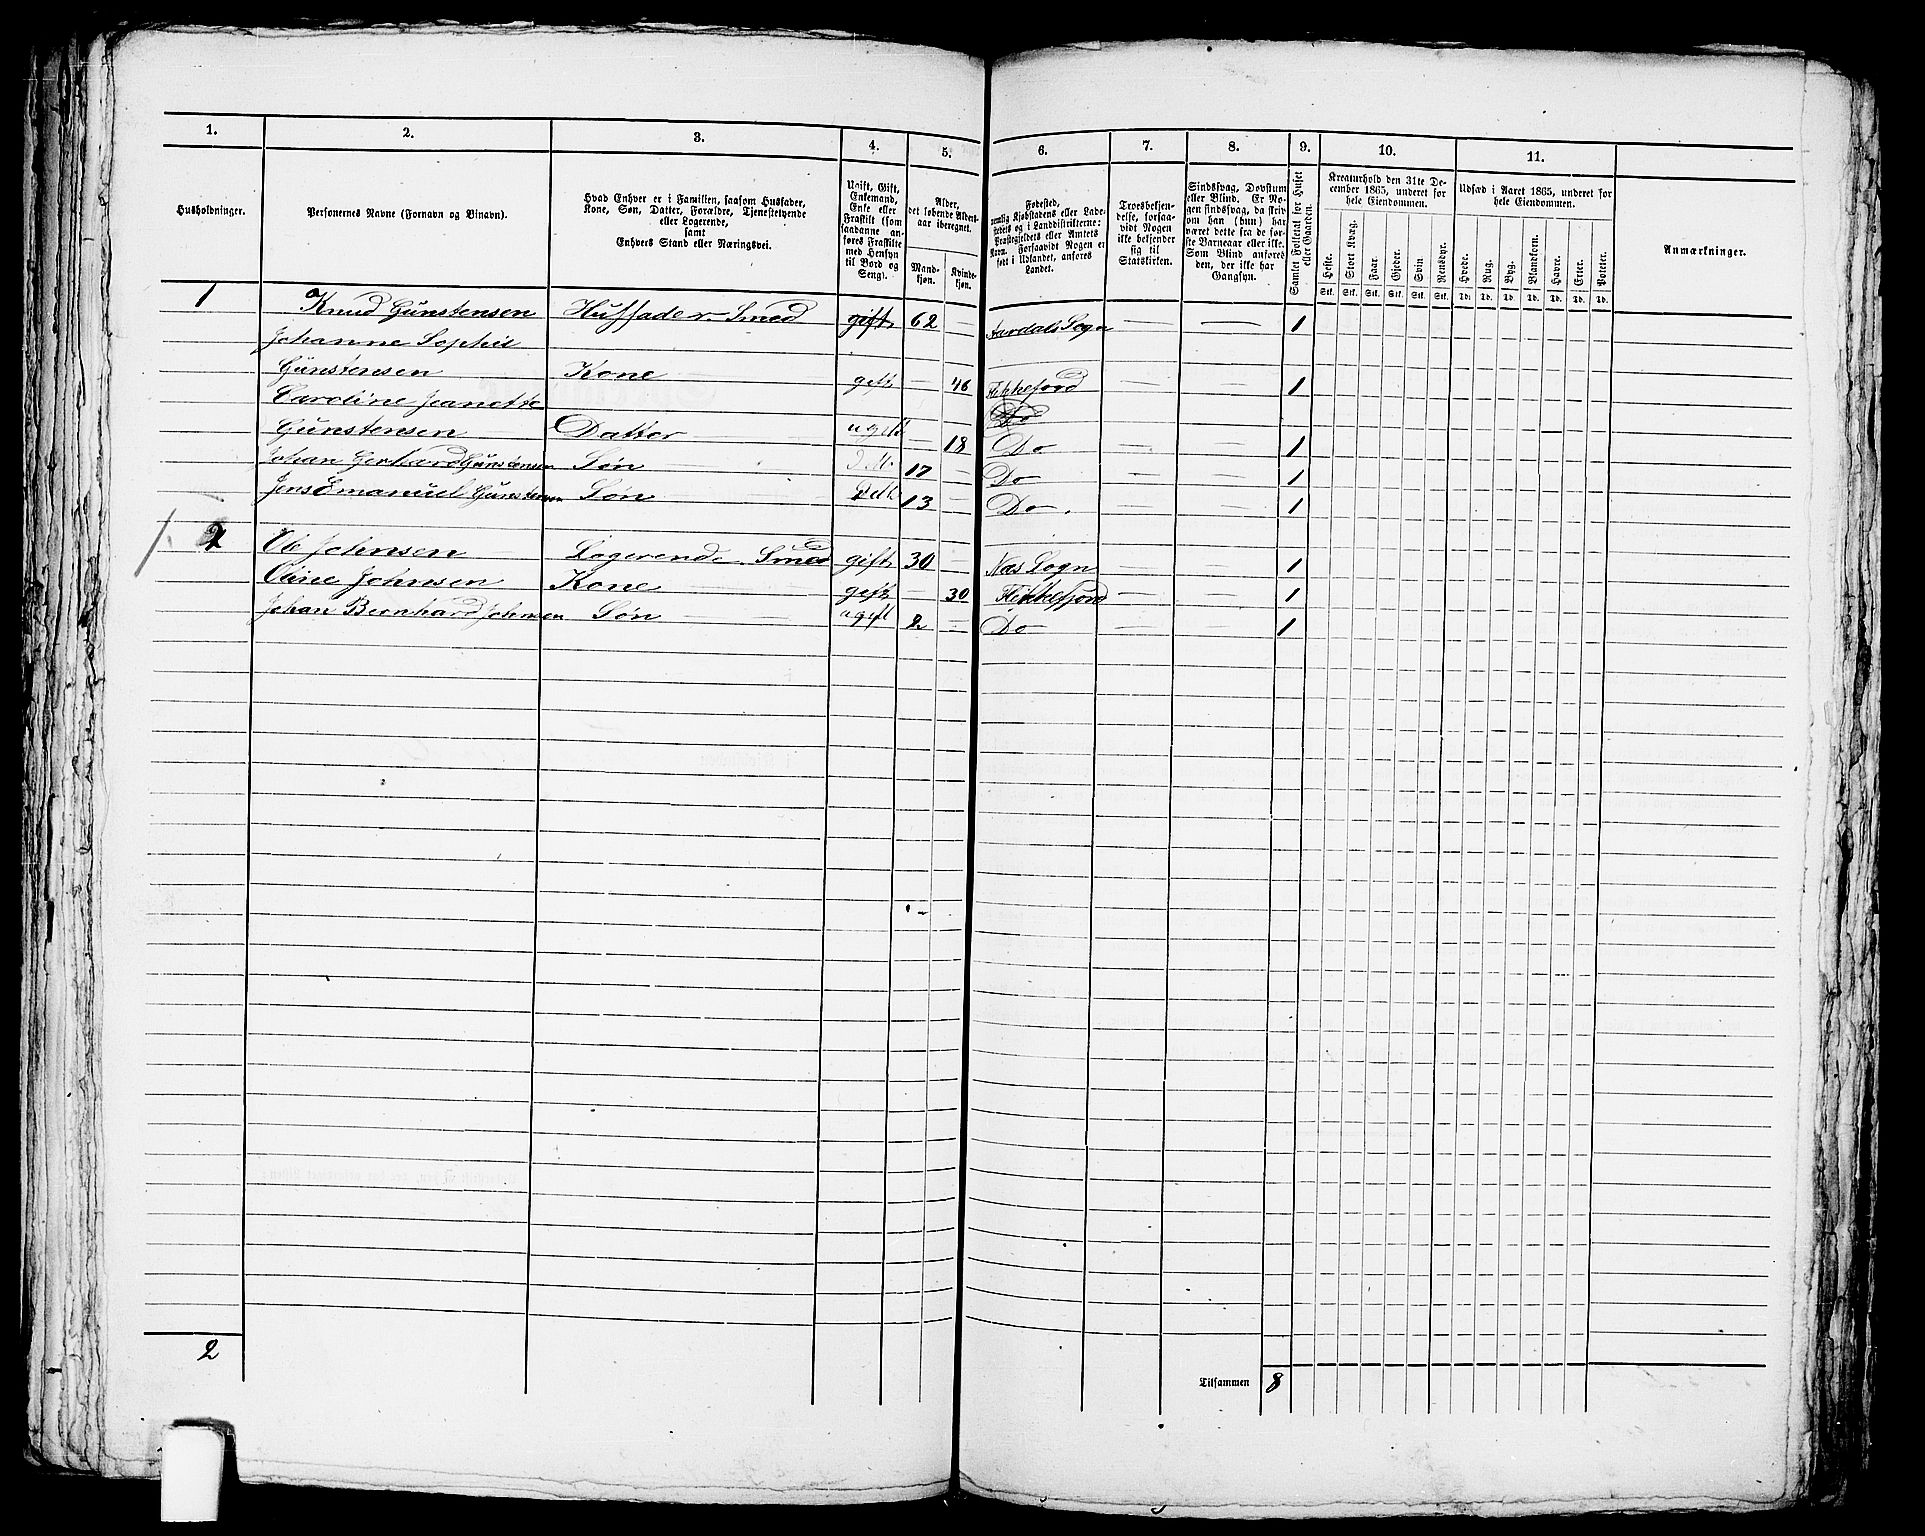 1. 2. 3. 4. 5. 6. 7. 8. 9. 10. 11.
Husholdninger.
Personernes Navne (Fornavn og Binavn).
Hvad Enhver er i Familien, saasom Husfader,
Kone, Søn, Datter, Forældre, Tjenestetyende
eller Logerende,
samt
Enhvers Stand eller Næringsvei.
Ugift, Gift,
Enkemand,
Enke eller
Fraskilt (som
saadanne an-
føres Fraskilte
med Hensyn
til Bord og
Seng).
Alder,
det løbende Alders-
aar iberegnet.
Mand-
kjøn.
Kvinde-
kjøn.
Fødested,
nemlig Kjøbstadens eller Lade-
stedets og i Landdistrikterne:
Præstegjeldets eller Amtets
Navn. Forsaavidt Nogen er
født i Udlandet, anføres
Landet.
Troesbekjen-
delse, forsaa-
vidt Nogen
ikke bekjender
sig til
Statskirken.
Sindssvag, Døvstum
eller Blind. Er No-
gen sindssvag, da skriv
om han (hun) har
været dette fra de før-
ste Barneaar eller ikke.
Som Blind anføres
den, der ikke har
Gangsyn.
Samlet Folketal for Huset
eller Gaarden.
Kreaturhold den 31te De-
cember 1865, underet for
hele Eiendommen.
Heste. Stort Kvæg. Faar. Gjeder. Svin. Rensdyr.
Stk. Stk. Stk. Stk. Stk. Stk.
Udsæd i Aaret 1865, underet for
hele Eiendommen.
Hvede. Rug. Byg. Blandkorn. Havre. Erter. Poteter.
Td. Td. Td. Td. Td. Td. Td.
Anmærkninger.
1 Knud Günstensen Husfader Smed gift 62 — Aardals Sogn — — 1
Johanne Sophie
Günstensen Kone gift — 46 Flekkefjord — — 1
Caroline Jeanette Do
Günstensen Datter ugift — 18 Do — — 1
Johan Gerhard Günstensen Søn 17 — Do — — 1
Jens Emanuel Günstensen Søn 13 — Do — — 1
2 Ole Johnsen Logerende Smed gift 30 — Næs Sogn 1
Oline Johnsen Kone gift — 30 Flekkefjord — — 1
Johan Bernhard Johnsen Søn ugift 2 — Do — — 1
2
Tilsammen 8